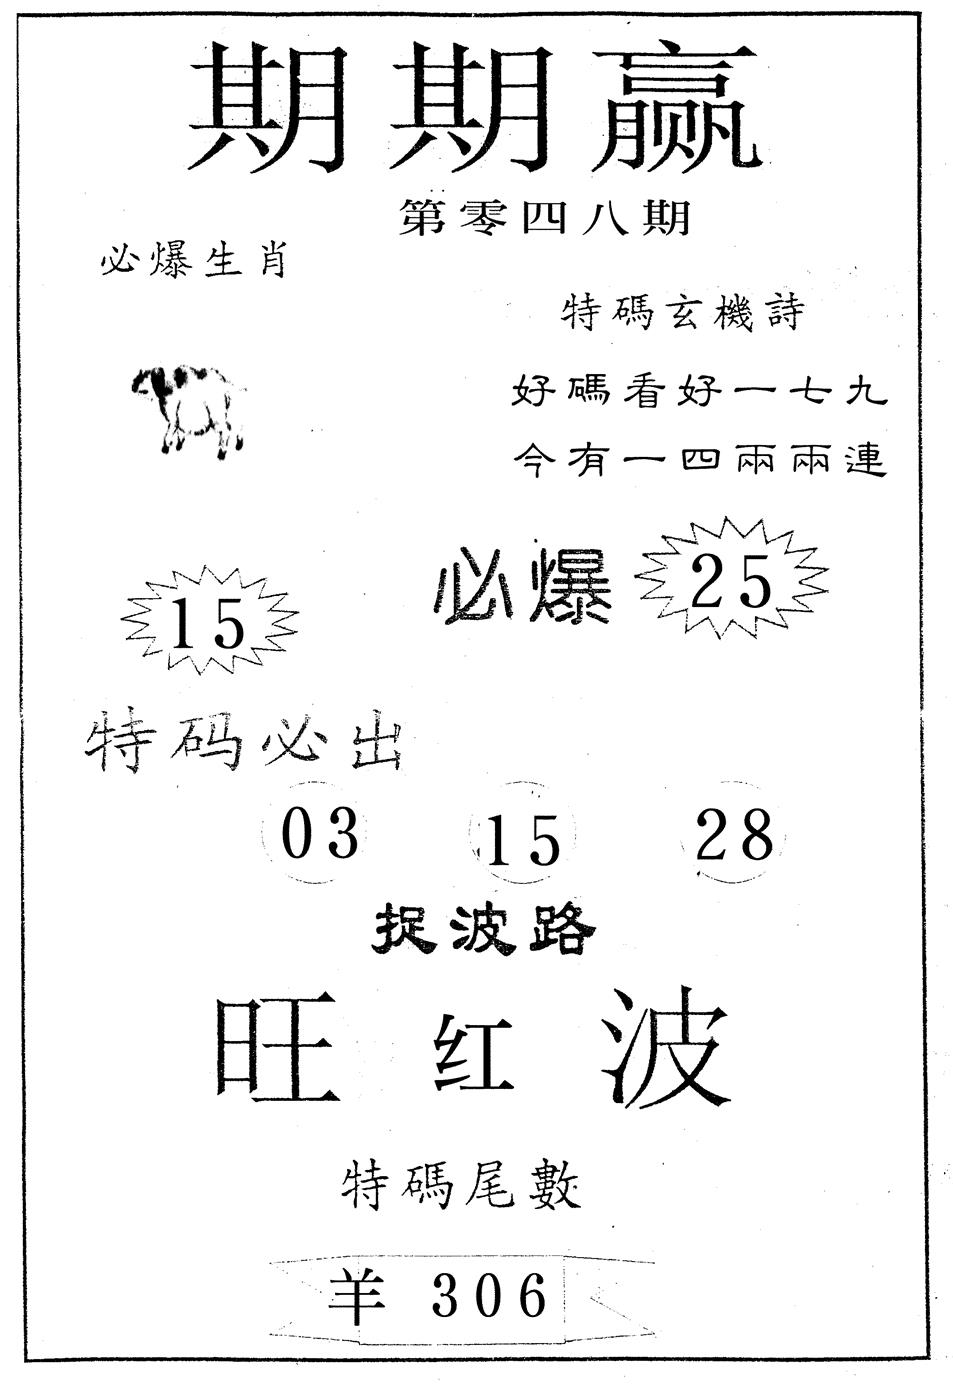 期期赢
第零四八期
必爆生肖
特碼玄機詩
好碼看好一七九
今有一四兩兩連
必爆 25
15
特码必出
03 15 28
捉波路
旺红波
特碼尾數
羊 306